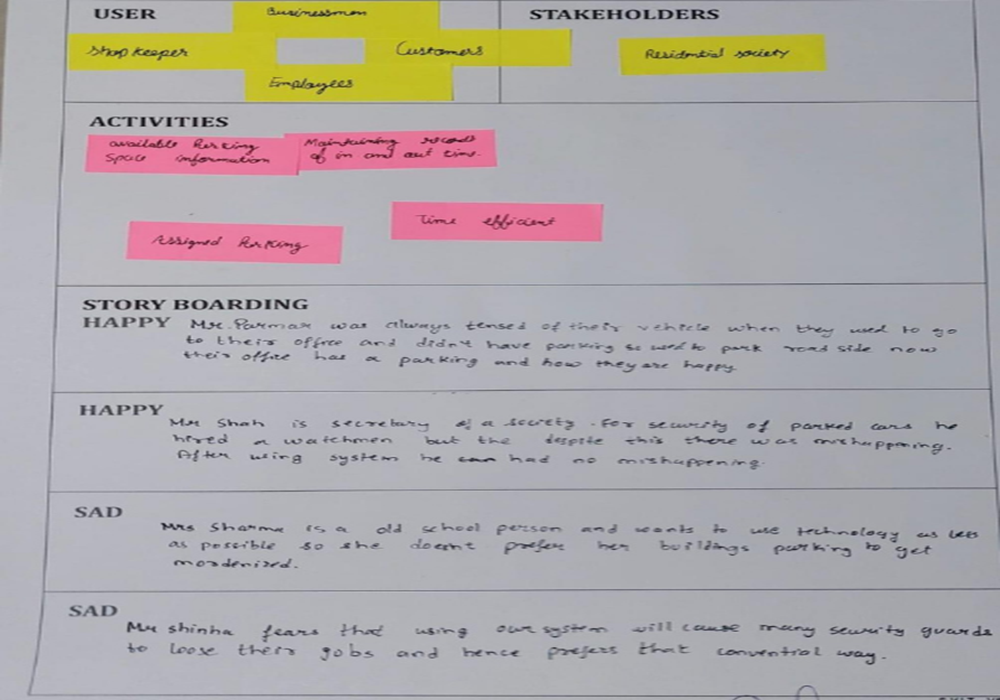 USER
Businessmen
STAKEHOLDERS
Shop keeper
Customers
Residential society
Employees
ACTIVITIES
available Parking
space information
Maintaining record
of in and out time.
Time efficient
Assigned Parking
STORY BOARDING
HAPPY Mr. Parmar was always tensed of their vehicle when they used to go
to their office and didn't have parking so used to park road side now
their office has a parking and now they are happy
HAPPY Mr Shah is secretary of a society. For security of parked cars he
hired a watchmen but the despite this there was mishappening.
After using system he can had no mishappening.
SAD
Mrs Sharma is a old school person and wants to use technology as less
as possible so she doesnt prefer her buildings parking to get
mordenized.
SAD
Mr shinha fears that using our system will cause many security guards
to loose their jobs and hence prefers that convential way.